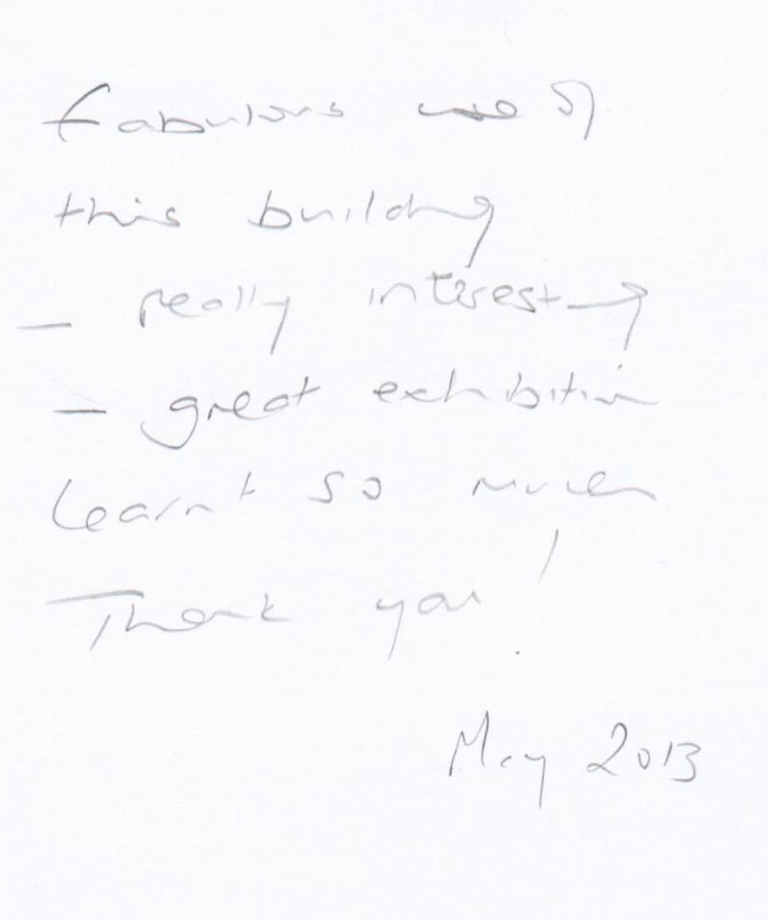 fabulous use of
this building
— really interesting
— great exhibition
Learnt so much
Thank you!
May 2013